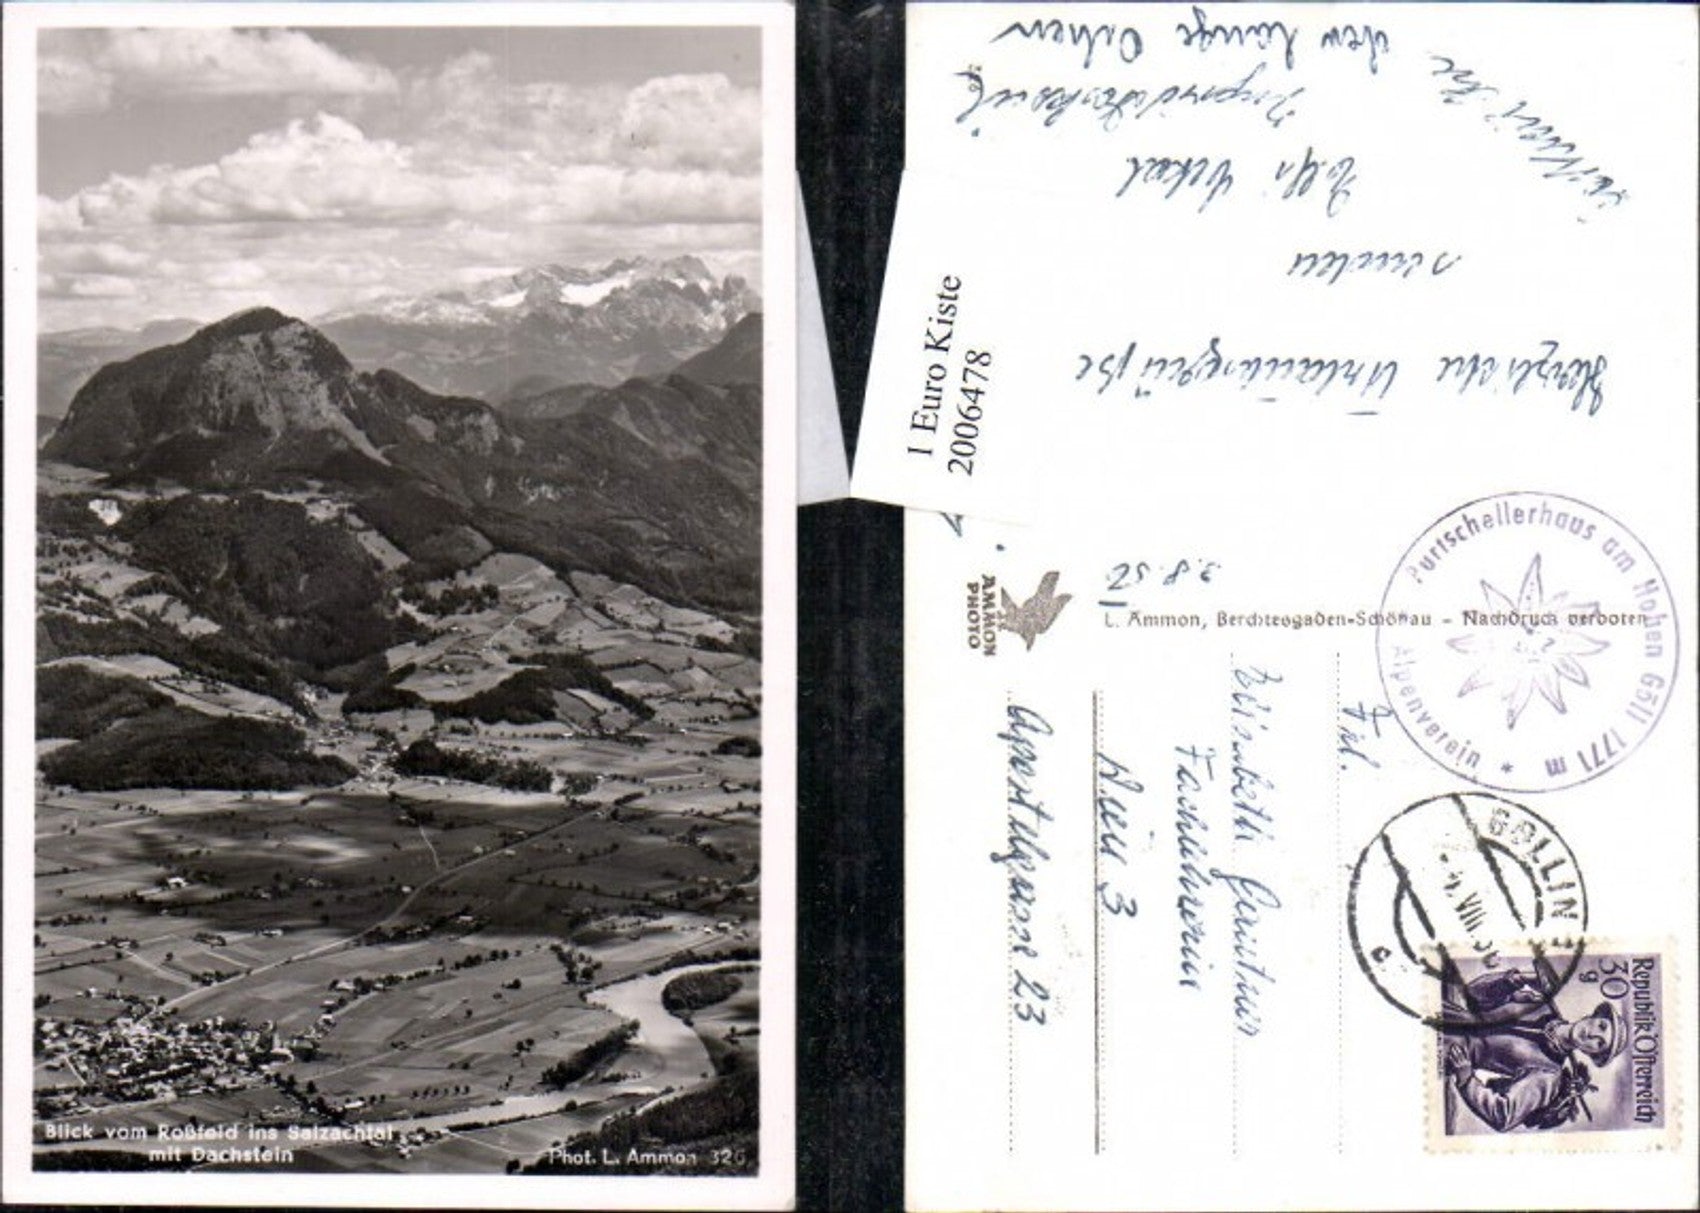 Blick vom Roßfeld ins Salzachtal
mit Dachstein
Phot. L. Ammon 326
1 Euro Kiste
2006478
Herzliche Urlaubsgrüße
senden
Ihre
der lange Ochen
3.8.52
AMMON
PHOTO
L. Ammon, Berchtesgaden-Schönau - Nachdruck verboten
Purtschellerhaus am Hohen Göll 1771 m
* Alpenverein
GOLLING
4. VIII.
c
Republik Österreich
30
g
Frl.
Elisabeth
Wien 3
Apostelgasse 23